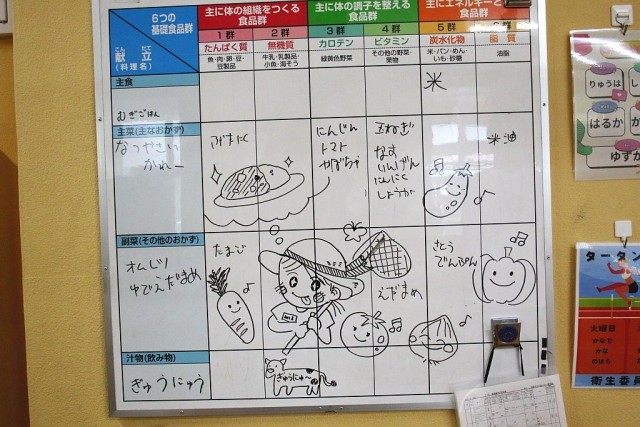 6つの
基礎食品群
主に体の組織をつくる
食品群
主に体の調子を整える
食品群
主にエネルギーと
食品群
こん だて
献 立
(料理名)
1群
2群
3群
4群
5群
6群
たんぱく質
無機質
カロテン
ビタミン
炭水化物
脂 質
魚・肉・卵・豆・
豆製品
牛乳・乳製品・
小魚・海そう
緑黄色野菜
その他の野菜・
果物
米・パン・めん・
いも・砂糖
油脂
主食
むぎごはん
米
主菜(主なおかず)
なつやさい
かれー
ぶたにく
にんじん
トマト
かぼちゃ
玉ねぎ
なす
いんげん
にんにく
しょうが
米油
副菜(その他のおかず)
オムレツ
ゆでえだまめ
たまご
えだまめ
さとう
でんぷん
汁物(飲み物)
ぎゅうにゅう
ぎゅうにゅ〜
りゅうは
はるか
ゆずか
タータン
火曜日
かなで
かな
のはら
衛生委員